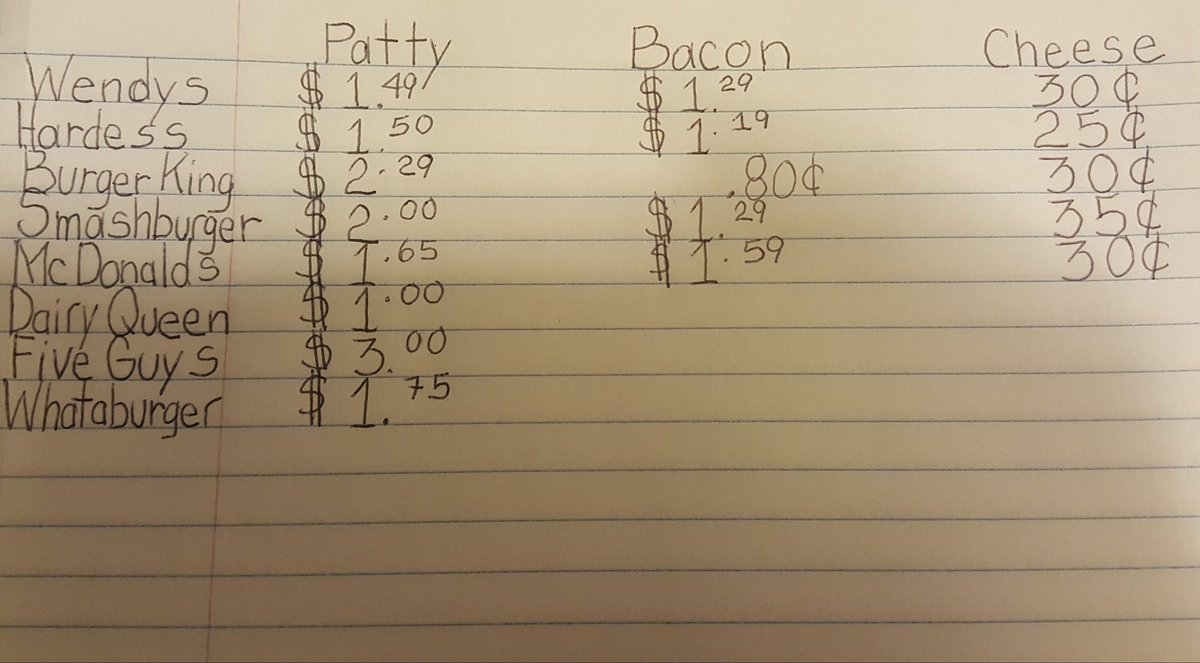 Patty Bacon Cheese
Wendys $ 1.49 $ 1.29 30¢
Hardess $ 1.50 $ 1.19 25¢
Burger King $ 2.29 .80¢ 30¢
Smashburger $ 2.00 $ 1.29 35¢
McDonalds $ 1.65 $ 1.59 30¢
Dairy Queen $ 1.00
Five Guys $ 3.00
Whataburger $ 1.75